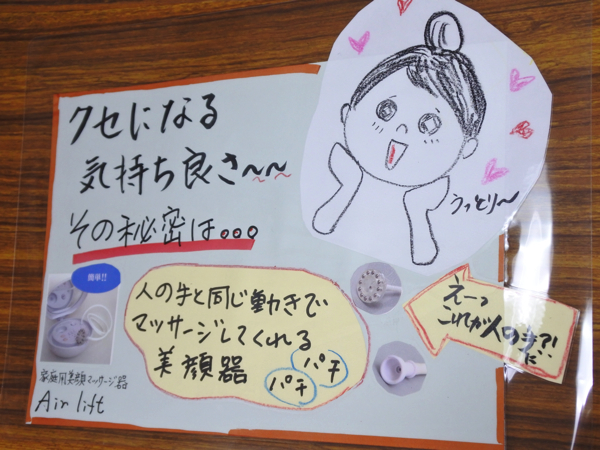 クセになる
気持ち良さ〜〜
その秘密は...
うっとり〜
簡単!!
人の手と同じ動きで
マッサージしてくれる
美顔器
パチ
パチ
えーっ
これが人の手に?!
家庭用美顔マッサージ器
Air lift